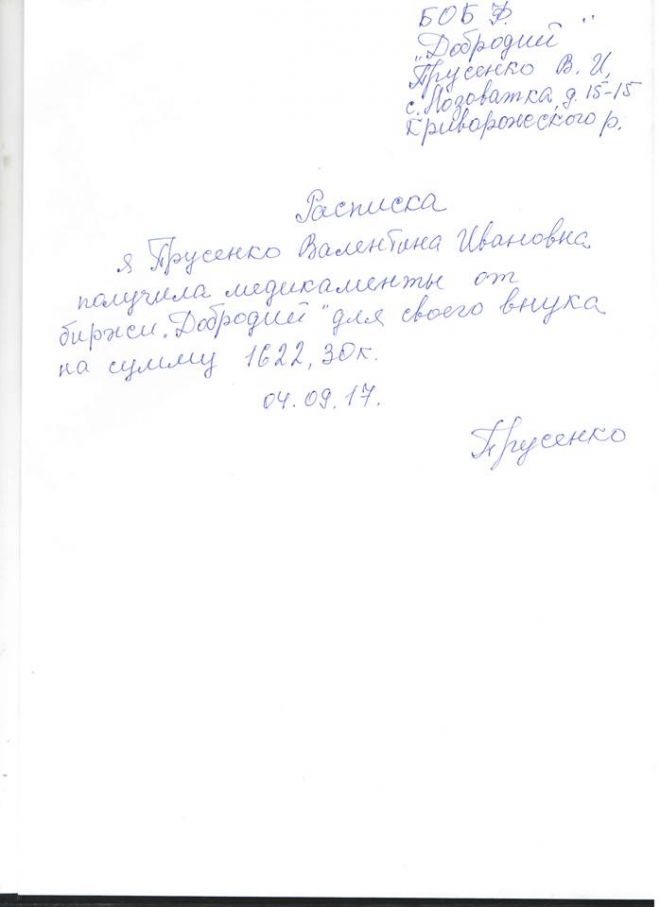 БОБФ
"Добродий"
Трусенко В. И,
с. Лозоватка, д. 15-15
Криворожского р.
Расписка
я Трусенко Валентина Ивановна
получила медикаменты от
биржи „Добродий" для своего внука
на сумму 1622, 30к.
04.09.17.
Трусенко